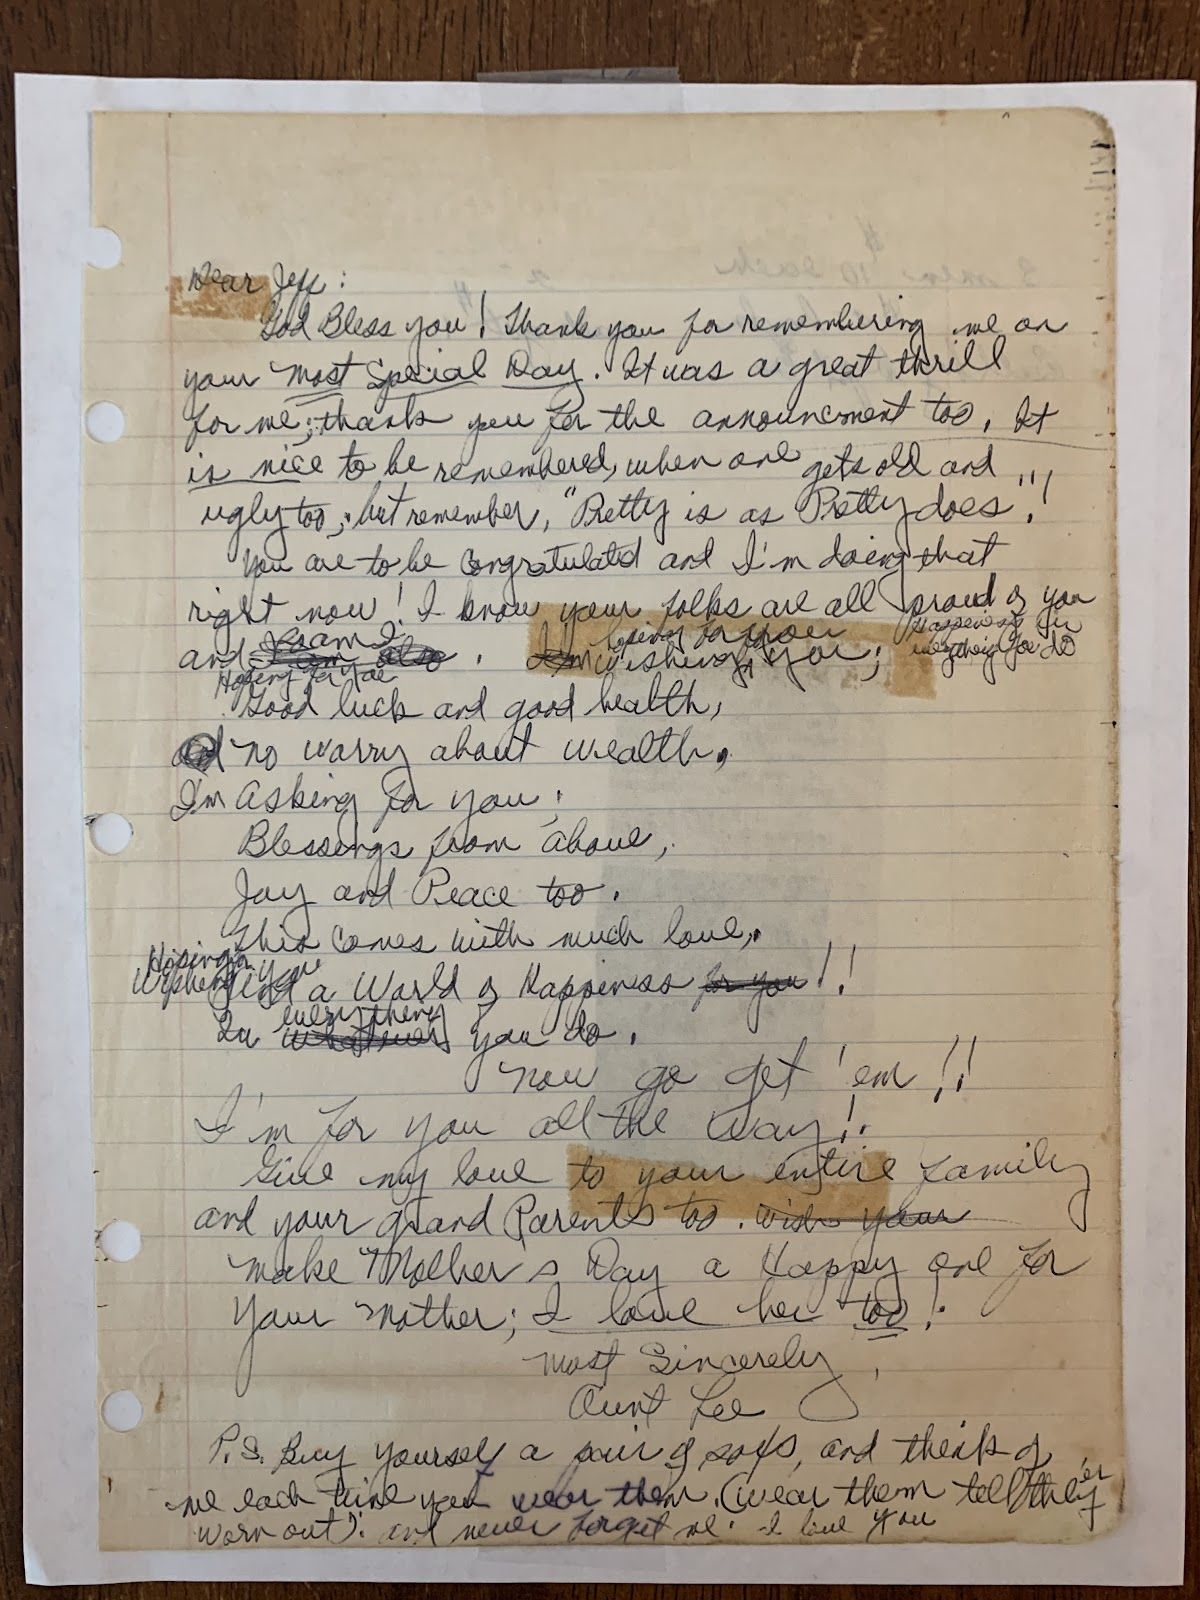 Dear Jeff:
God Bless you! Thank you for remembering me on
your most Special Day. It was a great thrill
for me; thank you for the announcment too. It
is nice to be remembered, when one gets old and
ugly too; but remember, "Pretty is as Pretty does"!!
You are to be Congratulated and I'm doing that
right now! I know your folks are all proud of you
and so am I. I'm wishing for you;
Hoping for you
hoping for your
Happiness in
everything you do
Good luck and good health,
and no worry about wealth,
I'm Asking for you;
Blessings from above,
Joy and Peace too.
This comes with much love,
Hoping
Wishing you a World of Happiness for you!!
In everything whatever you do.
Now go get 'em!!
I'm for you all the way!!
Give my love to your entire family
and your grand Parents too. wish your
make Mother's Day a Happy one for
your Mother; I love her too!
Most Sincerely,
Aunt Lee
P.S. Buy yourself a pair of sox, and think of
me each time you wear them. (wear them tell they'er
worn out)! and never forget me. I love you